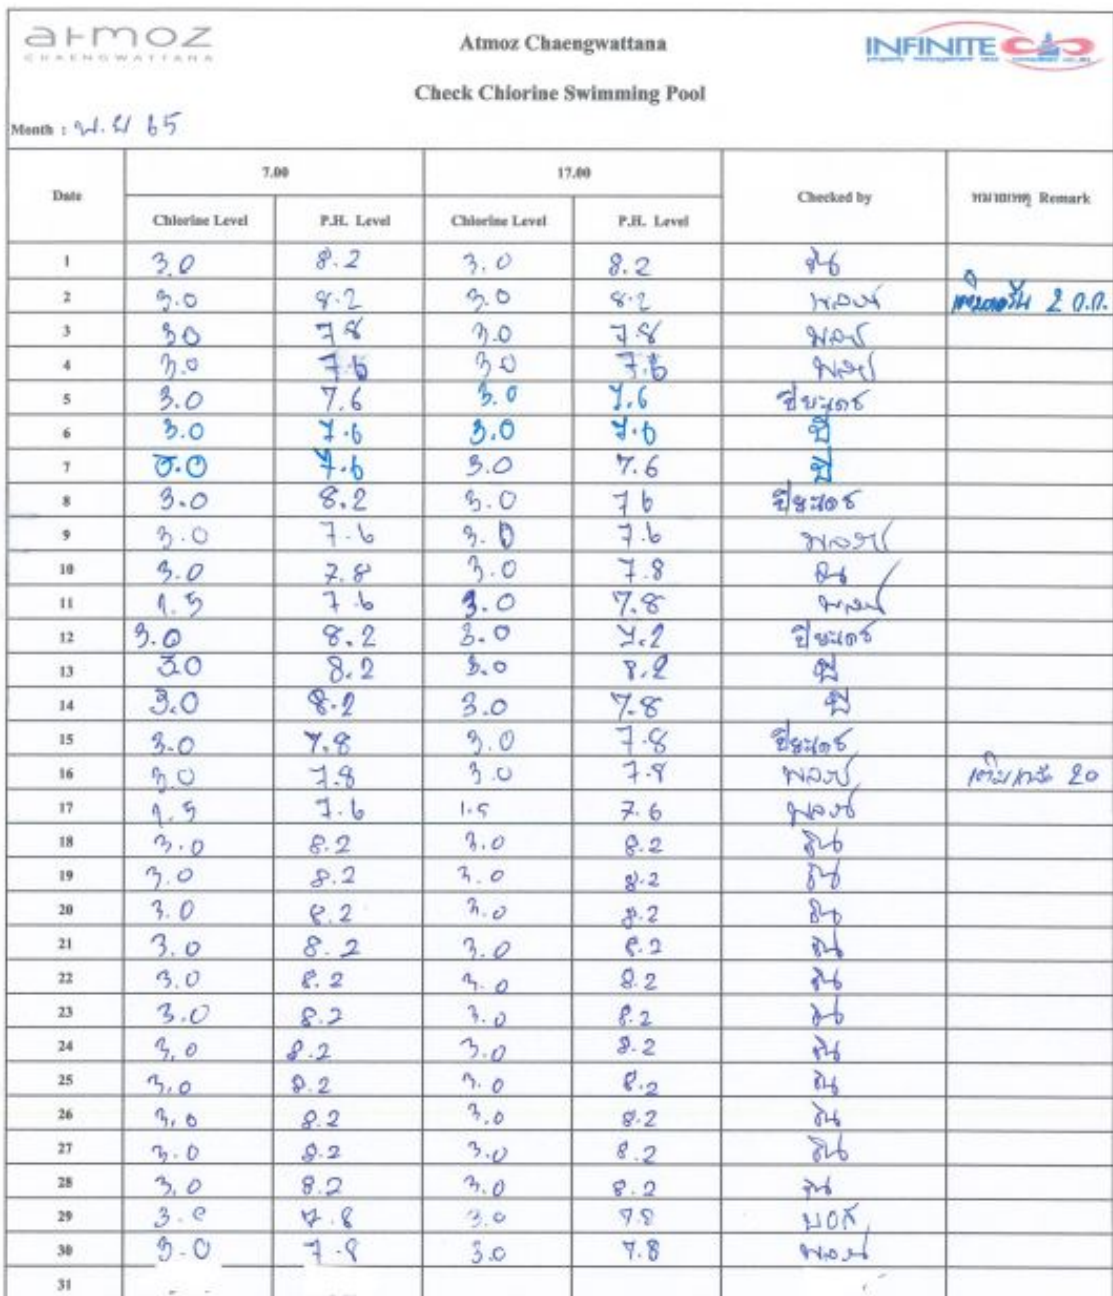 atmoz
CHAENGWATTANA
Atmoz Chaengwattana
INFINITE
Check Chlorine Swimming Pool
Month : พ.ย 65
Date 7.00 17.00 Checked by หมายเหตุ Remark
Chlorine Level P.H. Level Chlorine Level P.H. Level
1 3.0 8.2 3.0 8.2
2 3.0 8.2 3.0 8.2 พลงษ์ 2
3 30 78 3.0 7.8 พลงษ์
4 3.0 7.6 30 7.6 พลงษ์
5 3.0 7.6 3.0 7.6 ปิยะเดช
6 3.0 7.6 3.0 7.6 ปี
7 3.0 7.6 3.0 7.6 ปี
8 3.0 8.2 3.0 76 ปิยะเดช
9 3.0 7.6 3.0 7.6 พลงษ์
10 3.0 7.8 3.0 7.8
11 1.5 7.6 3.0 7.8 พลงษ์
12 3.0 8.2 3.0 7.2 ปิยะเดช
13 30 8.2 3.0 8.2 ปี
14 3.0 8.2 3.0 7.8 ปี
15 3.0 7.8 3.0 7.8 ปิยะเดช
16 3.0 7.8 3.0 7.8 พลงษ์ 20
17 1.5 7.6 1.5 7.6 พลงษ์
18 3.0 8.2 3.0 8.2
19 3.0 8.2 3.0 8.2
20 3.0 8.2 3.0 8.2
21 3.0 8.2 3.0 8.2
22 3.0 8.2 3.0 8.2
23 3.0 8.2 3.0 8.2
24 3.0 8.2 3.0 8.2
25 3.0 8.2 3.0 8.2
26 3.0 8.2 3.0 8.2
27 3.0 8.2 3.0 8.2
28 3.0 8.2 3.0 8.2
29 3.0 7.8 3.0 7.8
30 3.0 7.8 3.0 7.8 พลงษ์
31